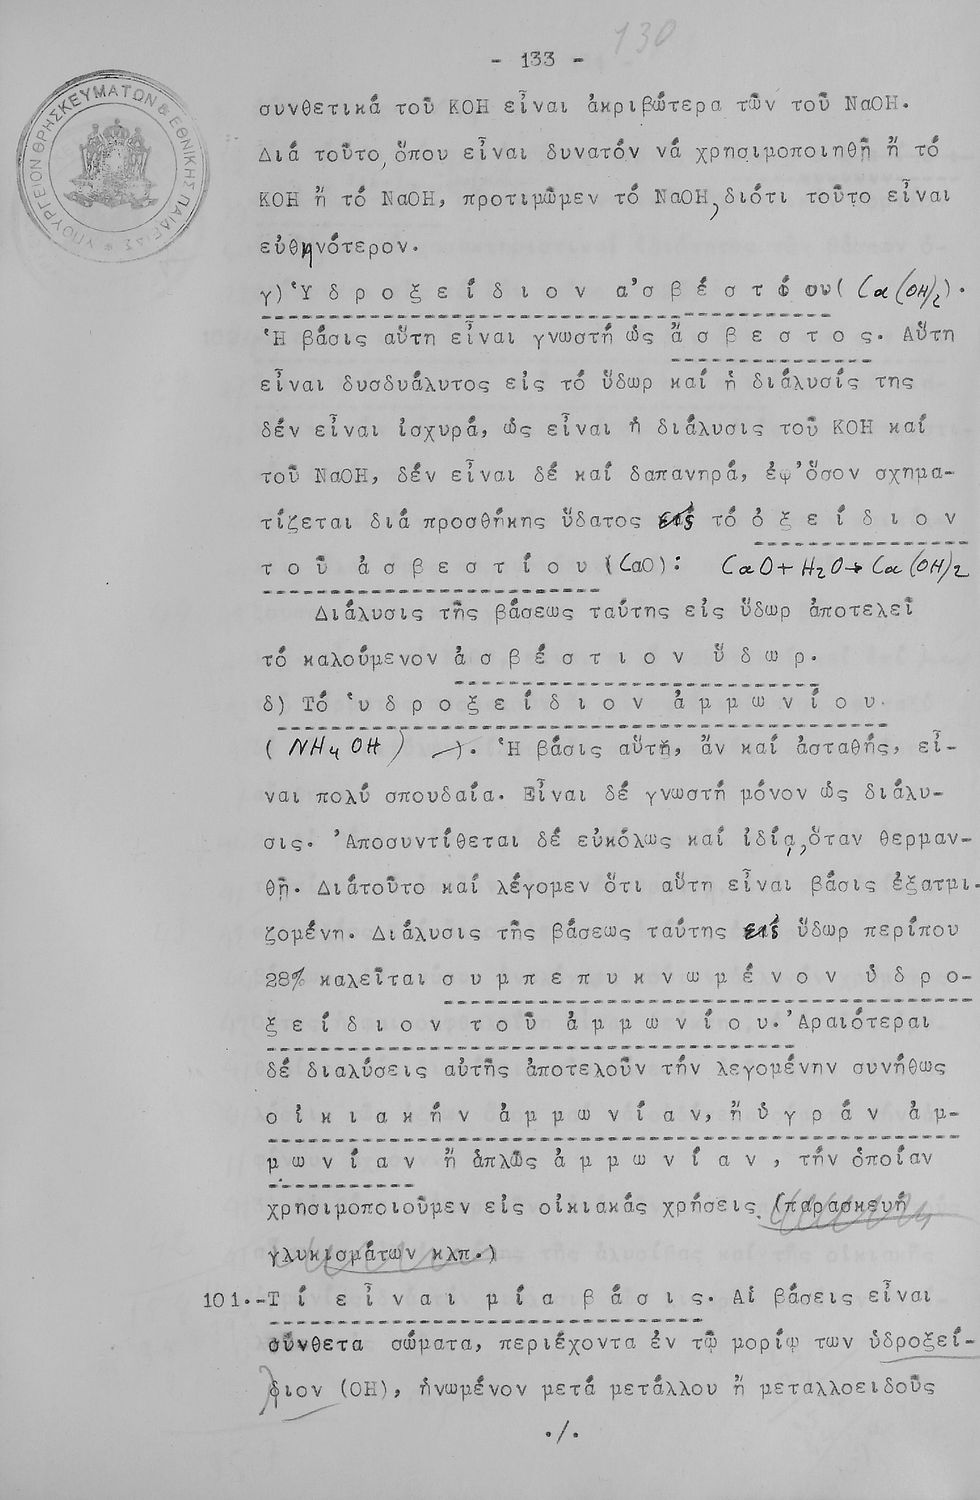 130
- 133 -
ΥΠΟΥΡΓΕΙΟΝ ΘΡΗΣΚΕΥΜΑΤΩΝ & ΕΘΝΙΚΗΣ ΠΑΙΔΕΙΑΣ
συνθετικά τοῦ ΚΟΗ εἶναι ἀκριβώτερα τῶν τοῦ ΝαΟΗ.
Διά τοῦτο, ὅπου εἶναι δυνατόν νά χρησιμοποιηθῇ ἤ τό
ΚΟΗ ἤ τό ΝαΟΗ, προτιμῶμεν τό ΝαΟΗ, διότι τοῦτο εἶναι
εὐθηνότερον.
γ) Ὑ δ ρ ο ξ ε ί δ ι ο ν ἀ σ β ε σ τ ί ου ( Ca(OH)2 ).
Ἡ βάσις αὕτη εἶναι γνωστή ὡς ἄ σ β ε σ τ ο ς. Αὕτη
εἶναι δυσδυάλυτος εἰς τό ὕδωρ καί ἡ διάλυσίς της
δέν εἶναι ἰσχυρά, ὡς εἶναι ἡ διάλυσις τοῦ ΚΟΗ καί
τοῦ ΝαΟΗ, δέν εἶναι δέ καί δαπανηρά, ἐφ'ὅσον σχημα-
τίζεται διά προσθήκης ὕδατος εἰς τό ὀ ξ ε ί δ ι ο ν
τ ο ῦ ἀ σ β ε σ τ ί ο υ (CaO): CaO + H2O → Ca(OH)2
Διάλυσις τῆς βάσεως ταύτης εἰς ὕδωρ ἀποτελεῖ
τό καλούμενον ἀ σ β έ σ τ ι ο ν ὕ δ ω ρ.
δ) Τό ὑ δ ρ ο ξ ε ί δ ι ο ν ἀ μ μ ω ν ί ο υ.
( NH4OH ) ). Ἡ βάσις αὕτη, ἄν καί ἀσταθής, εἶ-
ναι πολύ σπουδαία. Εἶναι δέ γνωστή μόνον ὡς διάλυ-
σις. Ἀποσυντίθεται δέ εὐκόλως καί ἰδίᾳ, ὅταν θερμαν-
θῇ. Διάτοῦτο καί λέγομεν ὅτι αὕτη εἶναι βάσις ἐξατμι-
ζομένη. Διάλυσις τῆς βάσεως ταύτης εἰς ὕδωρ περίπου
28% καλεῖται σ υ μ π ε π υ κ ν ω μ έ ν ο ν ὑ δ ρ ο-
ξ ε ί δ ι ο ν τ ο ῦ ἀ μ μ ω ν ί ο υ. Ἀραιότεραι
δέ διαλύσεις αὐτῆς ἀποτελοῦν τήν λεγομένην συνήθως
ο ἰ κ ι α κ ή ν ἀ μ μ ω ν ί α ν, ἤ ὑ γ ρ ά ν ἀ μ-
μ ω ν ί α ν ἤ ἁπλῶς ἀ μ μ ω ν ί α ν, τήν ὁποίαν
χρησιμοποιοῦμεν εἰς οἰκιακάς χρήσεις. (παρασκευή
γλυκισμάτων κλπ.)
101.-Τ ί ε ἶ ν α ι μ ί α β ά σ ι ς. Αἱ βάσεις εἶναι
σύνθετα σώματα, περιέχοντα ἐν τῷ μορίῳ των ὑδροξεί-
διον (ΟΗ), ἡνωμένον μετά μετάλλου ἤ μεταλλοειδοῦς
./.